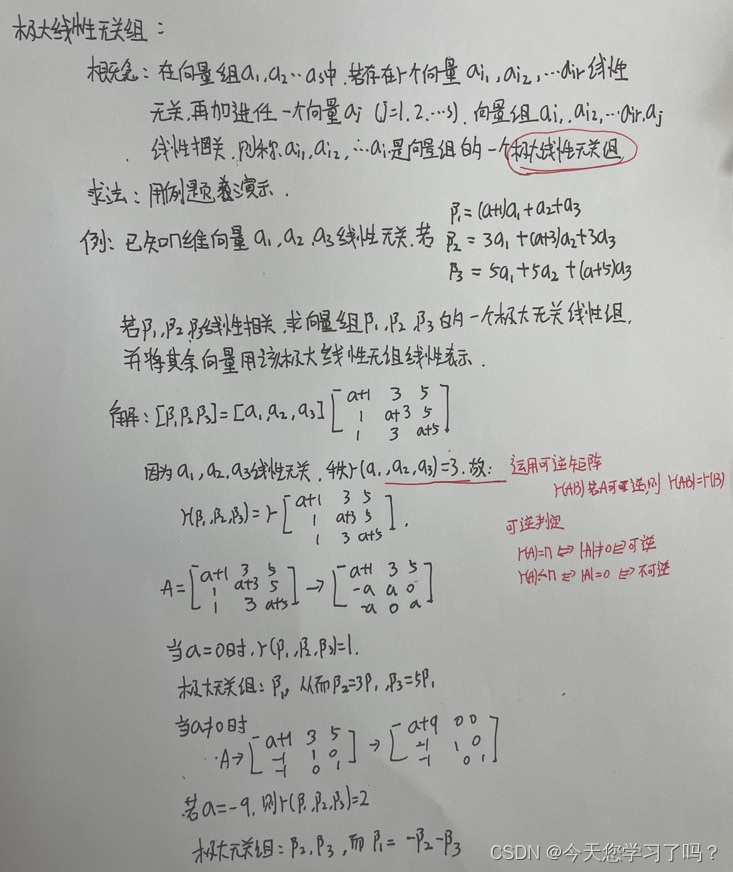 极大线性无关组：
概念：在向量组a₁,a₂…as中,若存在r个向量ai₁,ai₂,…air线性
无关,再加进任一个向量aj（j=1,2,…s）,向量组ai₁,ai₂,…air,aj
线性相关,则称,ai₁,ai₂,…ai是向量组的一个极大线性无关组
求法：用例题演示.
β₁=(a+1)a₁+a₂+a₃
例：已知n维向量a₁,a₂,a₃线性无关.若 β₂=3a₁+(a+3)a₂+3a₃
β₃=5a₁+5a₂+(a+5)a₃
若β₁,β₂,β₃线性相关,求向量组β₁,β₂,β₃的一个极大无关线性组,
并将其余向量用该极大线性无组线性表示.
解：[β₁β₂β₃]=[a₁,a₂,a₃] [a+1 3 5
1 a+3 5
1 3 a+5]
因为a₁,a₂,a₃线性无关,秩r(a₁,a₂,a₃)=3.故：
运用可逆矩阵
r(AB)若A可逆,则 r(AB)=r(B)
r(β₁,β₂,β₃)=r [a+1 3 5
1 a+3 5
1 3 a+5].
可逆判定
r(A)=n⇔|A|≠0⇔可逆
r(A)<n⇔|A|=0⇔不可逆
A= [a+1 3 5 → [a+1 3 5
1 a+3 5 -a a 0
1 3 a+5] -a 0 a]
当a=0时,r(β₁,β₂,β₃)=1.
极大无关组：β₁,从而β₂=3β₁,β₃=5β₁
当a≠0时
A→ [a+1 3 5 → [a+9 0 0
-1 1 0 -1 1 0
-1 0 1] -1 0 1]
若a=-9,则r(β₁,β₂,β₃)=2
极大无关组：β₂,β₃,而β₁=-β₂-β₃
CSDN @今天您学习了吗？